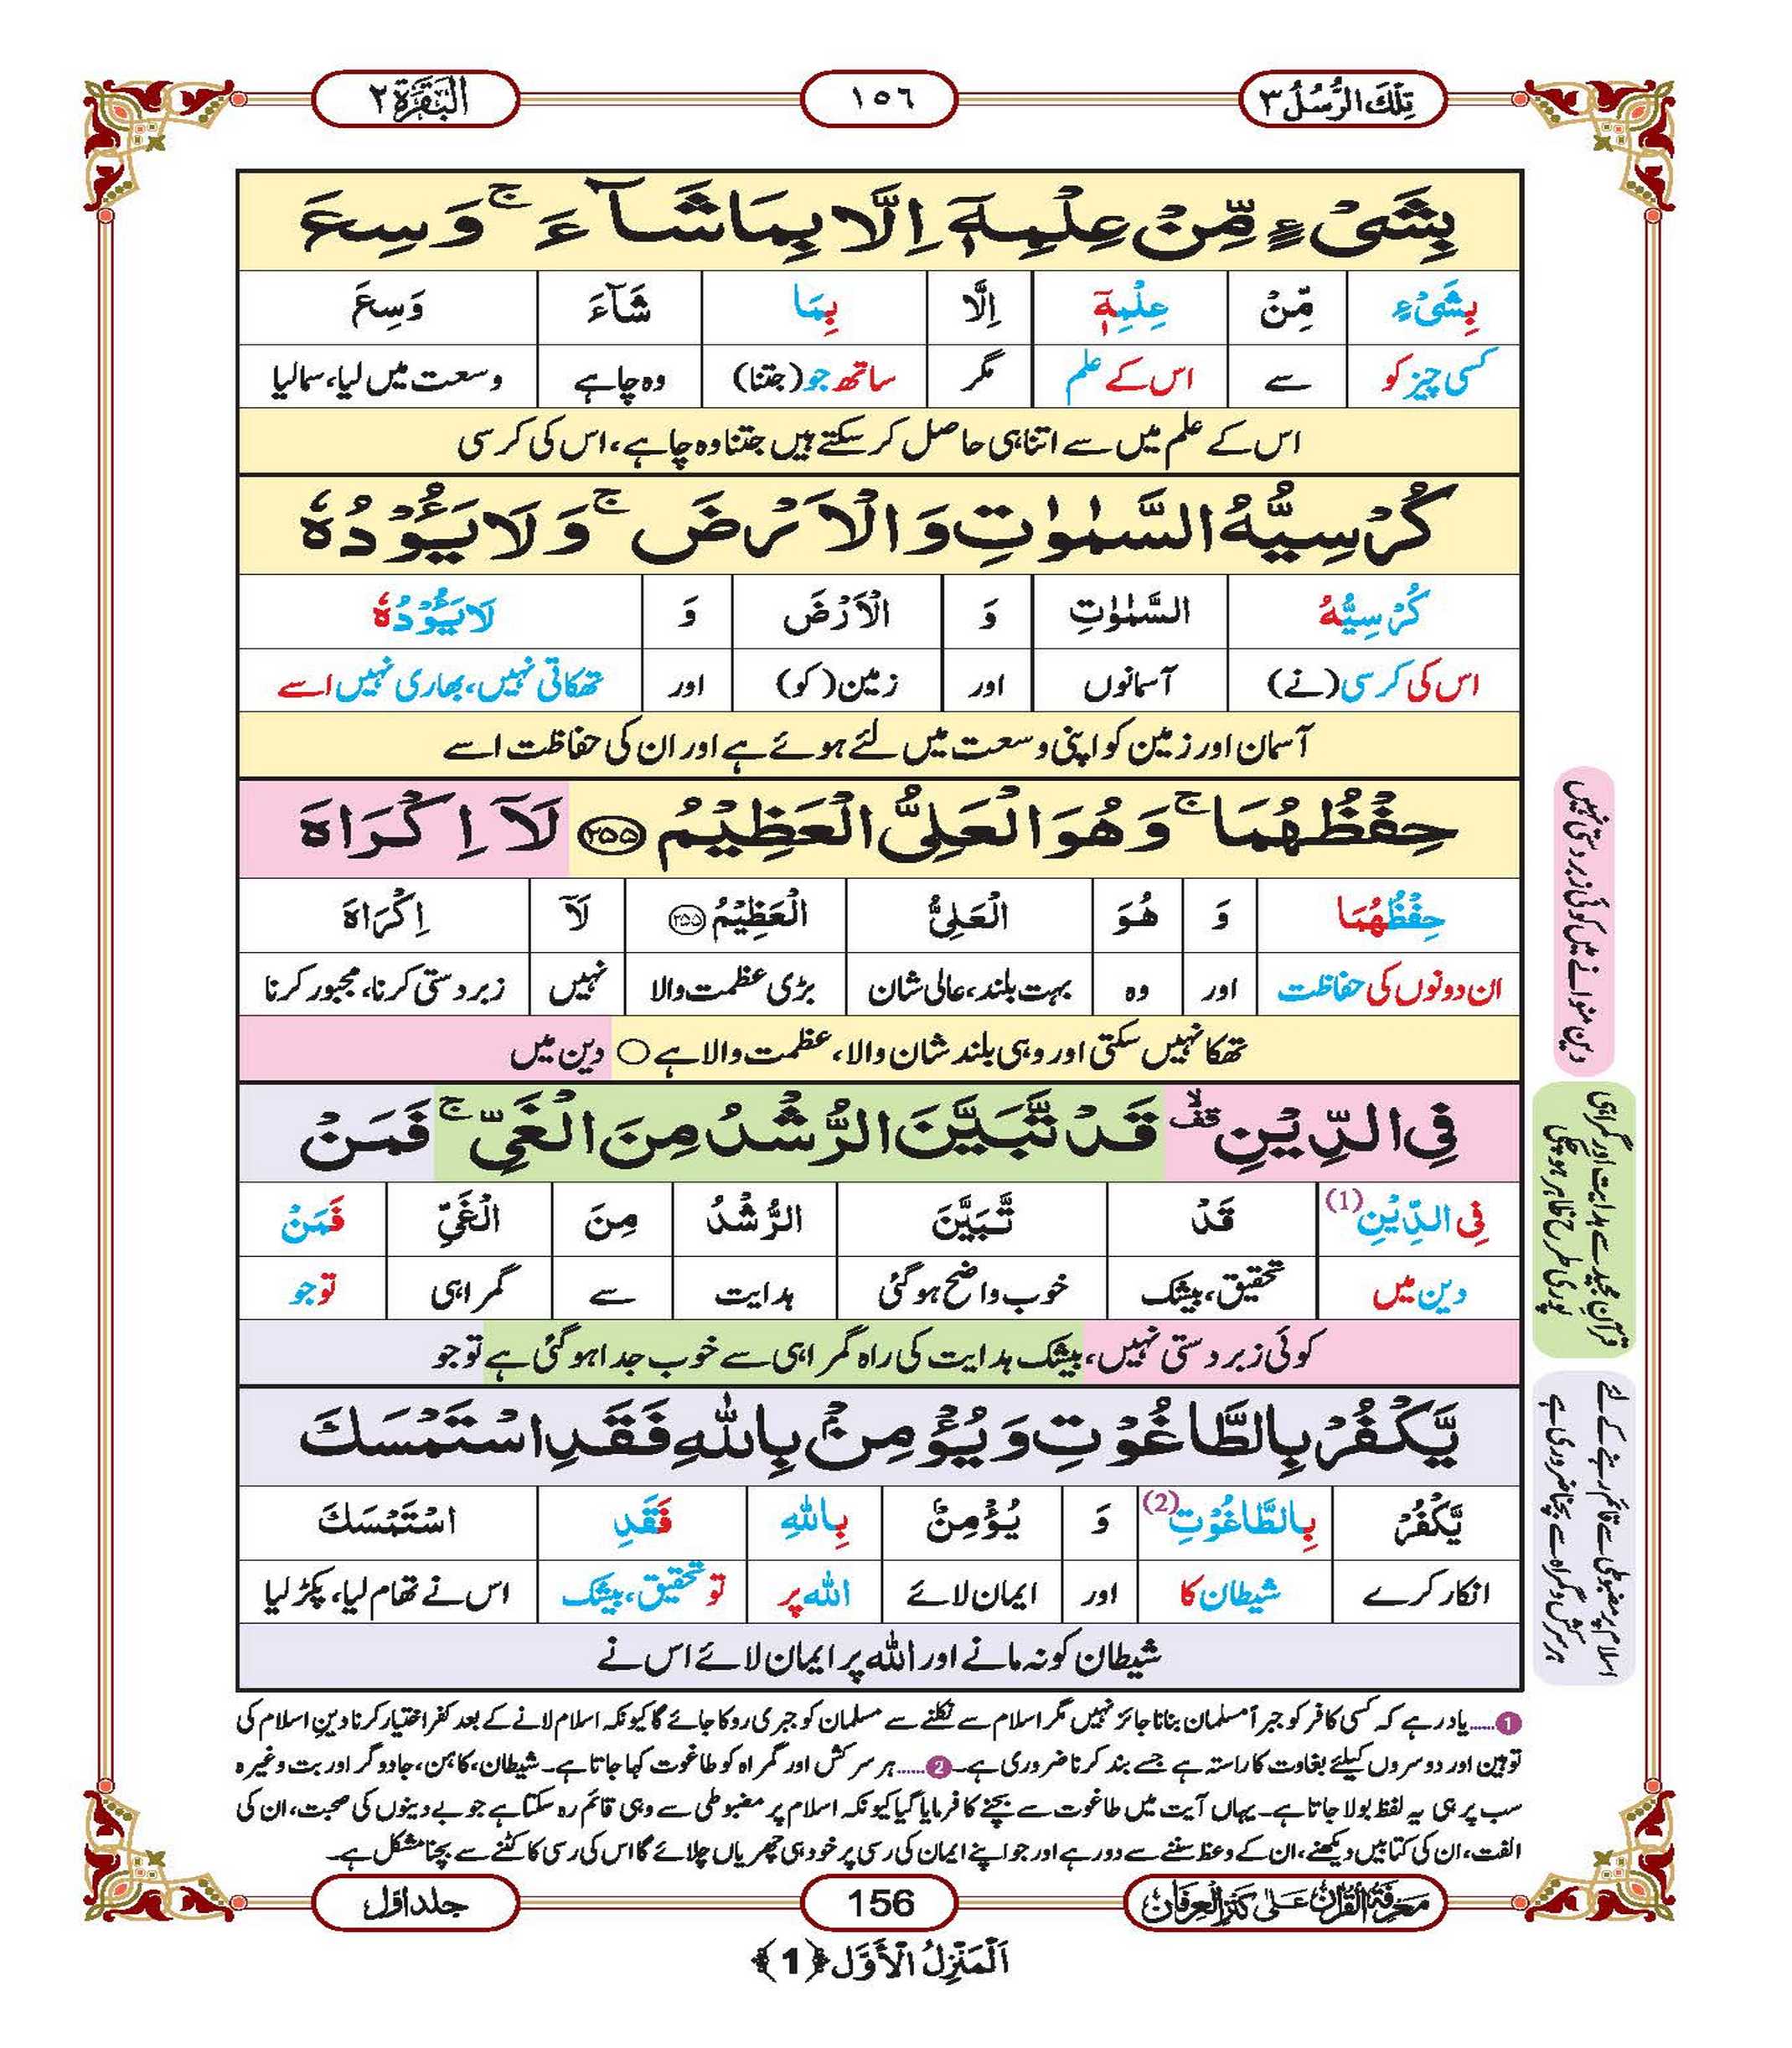 تِلْكَ الرُّسُلُ ٣
١٥٦
الْبَقَرَة ٢
بِشَیْءٍ مِّنْ عِلْمِهٖۤ اِلَّا بِمَا شَآءَ ۚ وَسِعَ
بِشَیْءٍ مِّنْ عِلْمِهٖۤ اِلَّا بِمَا شَآءَ وَسِعَ
کسی چیز کو سے اس کے علم مگر ساتھ جو (جتنا) وہ چاہے وسعت میں لیا، سمالیا
اس کے علم میں سے اتنا ہی حاصل کر سکتے ہیں جتنا وہ چاہے، اس کی کرسی
كُرْسِیُّهُ السَّمٰوٰتِ وَ الْاَرْضَ ۚ وَ لَا یَـُٔوْدُهٗ
كُرْسِیُّهُ السَّمٰوٰتِ وَ الْاَرْضَ وَ لَا یَـُٔوْدُهٗ
اس کی کرسی (نے) آسمانوں اور زمین (کو) اور تھکاتی نہیں، بھاری نہیں اسے
آسمان اور زمین کو اپنی وسعت میں لئے ہوئے ہے اور ان کی حفاظت اسے
حِفْظُهُمَا ۚ وَ هُوَ الْعَلِیُّ الْعَظِیْمُ ﴿۲۵۵﴾ لَاۤ اِكْرَاهَ
حِفْظُهُمَا وَ هُوَ الْعَلِیُّ الْعَظِیْمُ ﴿۲۵۵﴾ لَاۤ اِكْرَاهَ
ان دونوں کی حفاظت اور وہ بہت بلند، عالی شان بڑی عظمت والا نہیں زبردستی کرنا، مجبور کرنا
تھکا نہیں سکتی اور وہی بلند شان والا، عظمت والا ہے ○ دین میں
دین منوانے میں کوئی زبردستی نہیں
فِی الدِّیْنِ ۙ۫ قَدْ تَّبَیَّنَ الرُّشْدُ مِنَ الْغَیِّ ۚ فَمَنْ
فِی الدِّیْنِ (1) قَدْ تَّبَیَّنَ الرُّشْدُ مِنَ الْغَیِّ فَمَنْ
دین میں تحقیق، بیشک خوب واضح ہوگئی ہدایت سے گمراہی تو جو
کوئی زبردستی نہیں، بیشک ہدایت کی راہ گمراہی سے خوب جدا ہوگئی ہے تو جو
قرآنِ مجید سے ہدایت اور گمراہی
پوری طرح ظاہر ہوچکی
یَّكْفُرْ بِالطَّاغُوْتِ وَ یُؤْمِنْۢ بِاللّٰهِ فَقَدِ اسْتَمْسَكَ
یَّكْفُرْ بِالطَّاغُوْتِ (2) وَ یُؤْمِنْۢ بِاللّٰهِ فَقَدِ اسْتَمْسَكَ
انکار کرے شیطان کا اور ایمان لائے اللہ پر تو تحقیق، بیشک اس نے تھام لیا، پکڑ لیا
شیطان کو نہ مانے اور اللہ پر ایمان لائے اس نے
اسلام پر مضبوطی سے قائم رہنے کے لئے
ہر سرکش و گمراہ سے بچنا ضروری ہے
1 ......یاد رہے کہ کسی کافر کو جبراً مسلمان بنانا جائز نہیں مگر اسلام سے نکلنے سے مسلمان کو جبری روکا جائے گا کیونکہ اسلام لانے کے بعد کفر اختیار کرنا دینِ اسلام کی
توہین اور دوسروں کیلئے بغاوت کا راستہ ہے جسے بند کرنا ضروری ہے۔ 2 ......ہر سرکش اور گمراہ کو طاغوت کہا جاتا ہے۔ شیطان، کاہن، جادوگر اور بت وغیرہ
سب پر ہی یہ لفظ بولا جاتا ہے۔ یہاں آیت میں طاغوت سے بچنے کا فرمایا گیا کیونکہ اسلام پر مضبوطی سے وہی قائم رہ سکتا ہے جو بے دینوں کی صحبت، ان کی
الفت، ان کی کتابیں دیکھنے، ان کے وعظ سننے سے دور رہے اور جو اپنے ایمان کی رسی پر خود ہی چھریاں چلائے گا اس کی رسی کا کٹنے سے بچنا مشکل ہے۔
مَعْرِفَةُ الْقُرْآن عَلٰى كَنْزُ الْعِرْفَان
156
جلد اوّل
اَلْمَنْزِلُ الْاَوَّل ﴿1﴾